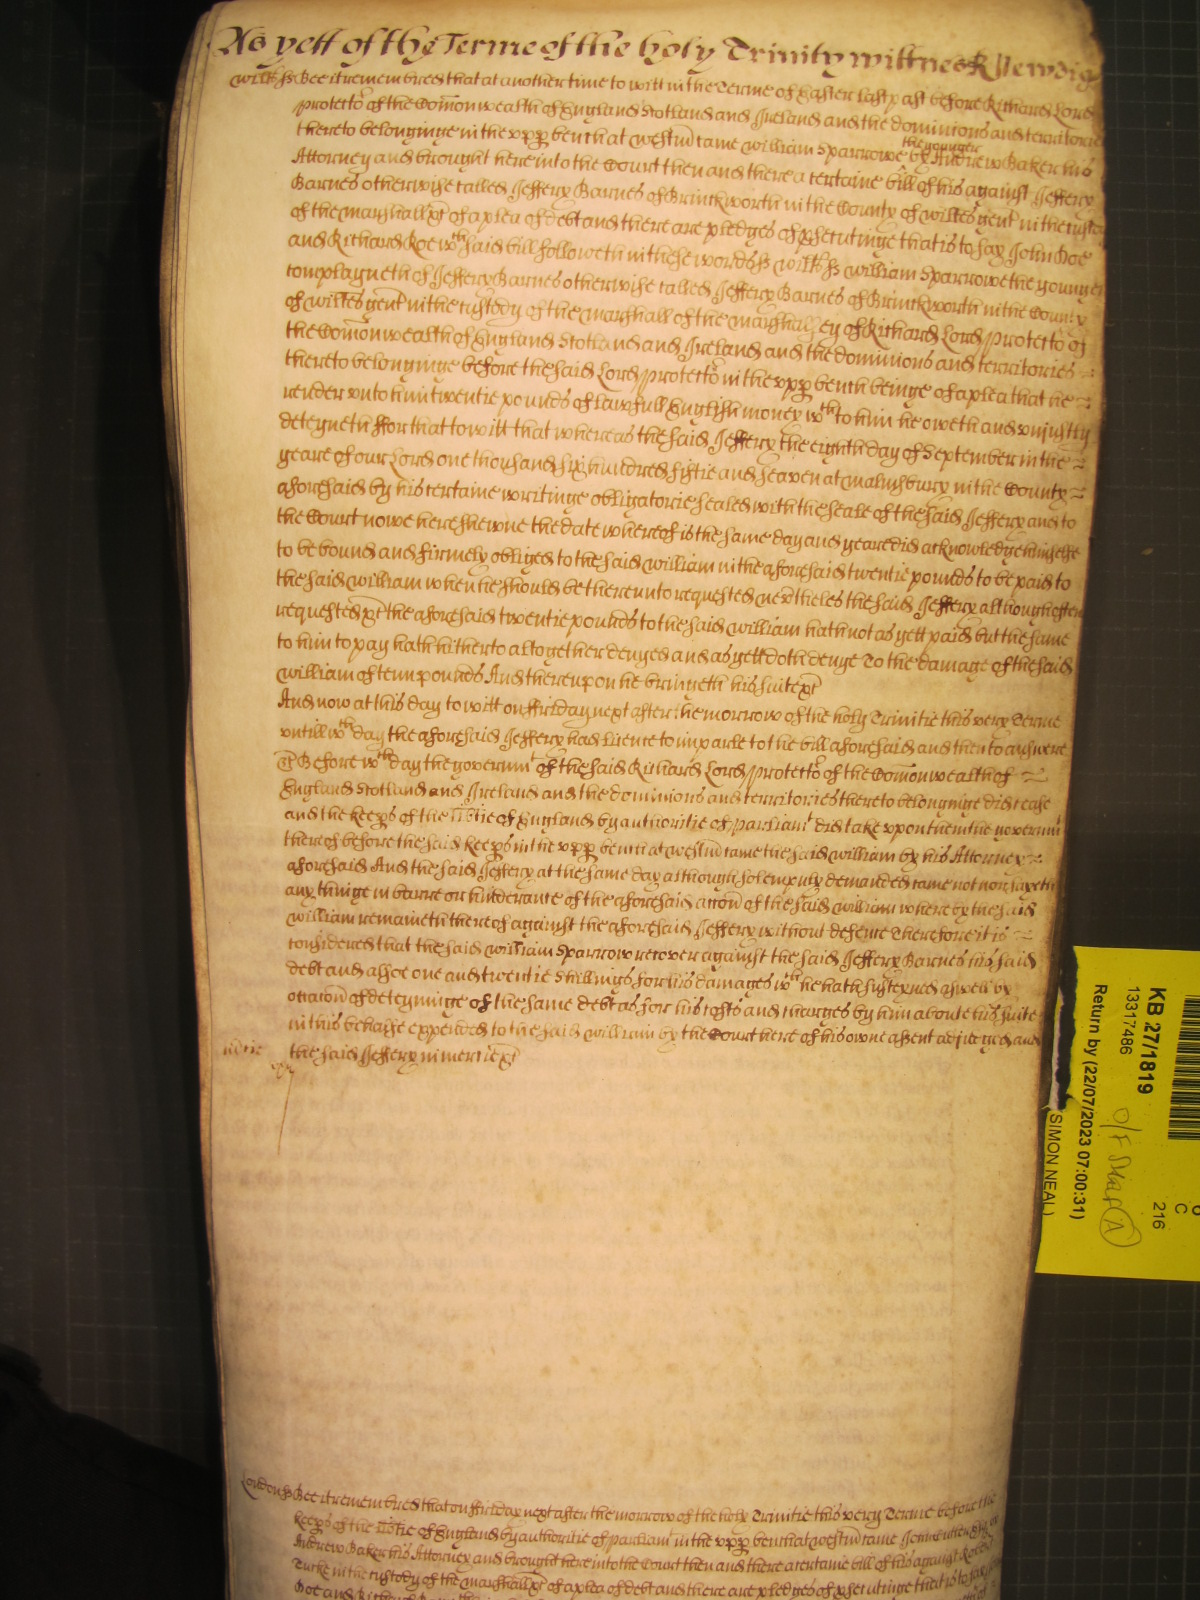 As yett of the Terme of the holy Trinity wittnes R Newdig
Wiltss ss Bee it remembred that at another time to witt in the Terme of Easter last past before Richard Lord
Protector of the Comonwealth of England Scotland and Ireland and the dominions and territories
thereto belonginge in the upp bench at Westm came William Sparrowe the younger by Andrew Baker his
Attorney and brought here into the Court then and there a certaine bill of his against Jeffery
Barnes otherwise called Jeffery Barnes of Brinckworth in the County of Wiltes gent in the custody
of the marshall &c of a plea of debt and there are pledges of psecutinge that is to say John Doe
and Richard Roe wch said bill followeth in these words ss Wiltss ss William Sparrowe the younger
complayneth of Jeffery Barnes otherwise called Jeffery Barnes of Brinckworth in the County
of Wiltes gent in the custody of the marshall of the marshalsey of Richard Lord Protector of
the Comonwealth of England Scotland and Ireland and the dominions and territories
thereto belonginge before the said Lord Protector in the upp bench beinge of a plea that he
render unto him twentie pounds of lawfull English money wch to him he oweth and unjustly
deteyneth ffor that to witt that whereas the said Jeffery the eighth day of September in the
yeare of our Lord one thousand six hundred fiftie and seaven at Malmsbury in the County
aforesaid by his certaine writinge obligatorie sealed with the seale of the said Jeffery and to
the Court nowe here shewne the date whereof is the same day and yeare did acknowledge himselfe
to be bound and firmely obliged to the said William in the aforesaid twentie pounds to be paid to
the said William when he should be thereunto requested nevtheles the said Jeffery although often
requested &c the aforesaid twentie pounds to the said William hath not as yett paid but the same
to him to pay hath hitherto altogether denyed and as yett doth denye To the damage of the said
William of tenn pounds And thereupon he bringeth his suite &c
And now at this day to witt on ffriday next after the morrow of the holy Trinitie this very Terme
untill wch day the aforesaid Jeffery had licence to imparle to the bill aforesaid and then to answere
&c Before wch day the governmt of the said Richard Lord Protector of the Comonwealth of
England Scotland and Ireland and the dominions and territories thereto belonginge did cease
and the keeps of the libtie of England by authoritie of Parliamt did take upon them the governmt
thereof before the said keeps in the upp bench at Westm came the said William by his Attorney
aforesaid And the said Jeffery at the same day although solempnly demanded came not nor sayeth
any thinge in barre or hinderance of the aforesaid accon of the said William whereby the said
William remaineth thereof against the aforesaid Jeffery without defence Therefore it is
considered that the said William Sparrow recover against the said Jeffery Barnes his said
debt and alsoe one and twentie shillings for his damages wch he hath susteyned aswell by
occacon of deteyninge of the same debt as for his costs and charges by him about his suite
in this behalfe expended to the said William by the Court here of his owne assent adjudged and
the said Jeffery in mercie &c
mcie
London ss Bee it remembred that on ffriday next after the morrow of the holy Trinitie this very Terme before the
keeps of the libtie of England by authoritie of Parliamt in the upp bench at Westm came
Andrew Baker his Attorney and brought here into the Court then and there a certaine bill of his against
in the custody of the marshall &c of a plea of debt and there are pledges of psecutinge that is to say
Doe and Richard
KB 27/1819
13317486
Return by (22/07/2023 07:00:31)
(SIMON NEAL)
216
C
A